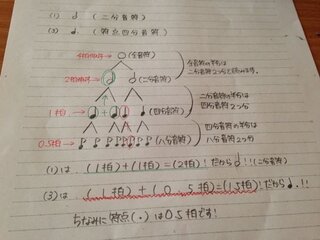 (1) 𝅗𝅥 (二分音符)
(3) ♩. (符点四分音符)
4拍伸ばす→ 𝅝 (全音符)
全音符の半分は
二分音符2つ分と読みます。
2拍伸ばす→ 𝅗𝅥 𝅗𝅥 (二分音符)
二分音符の半分は
四分音符2つ分
1拍→ ♩ + ♩ ♩ ♩ (四分音符)
四分音符の半分は
八分音符2つ分
0.5拍→ ♪ ♪ ♪ ♪ ♪ ♪ ♪ ♪ (八分音符)
(1)は (1拍)+(1拍)=(2拍)!だから𝅗𝅥!!(二分音符)
(3)は (1拍)+(0.5拍)=(1.5拍)!だから♩.!!
ちなみに符点(.)は0.5拍です!